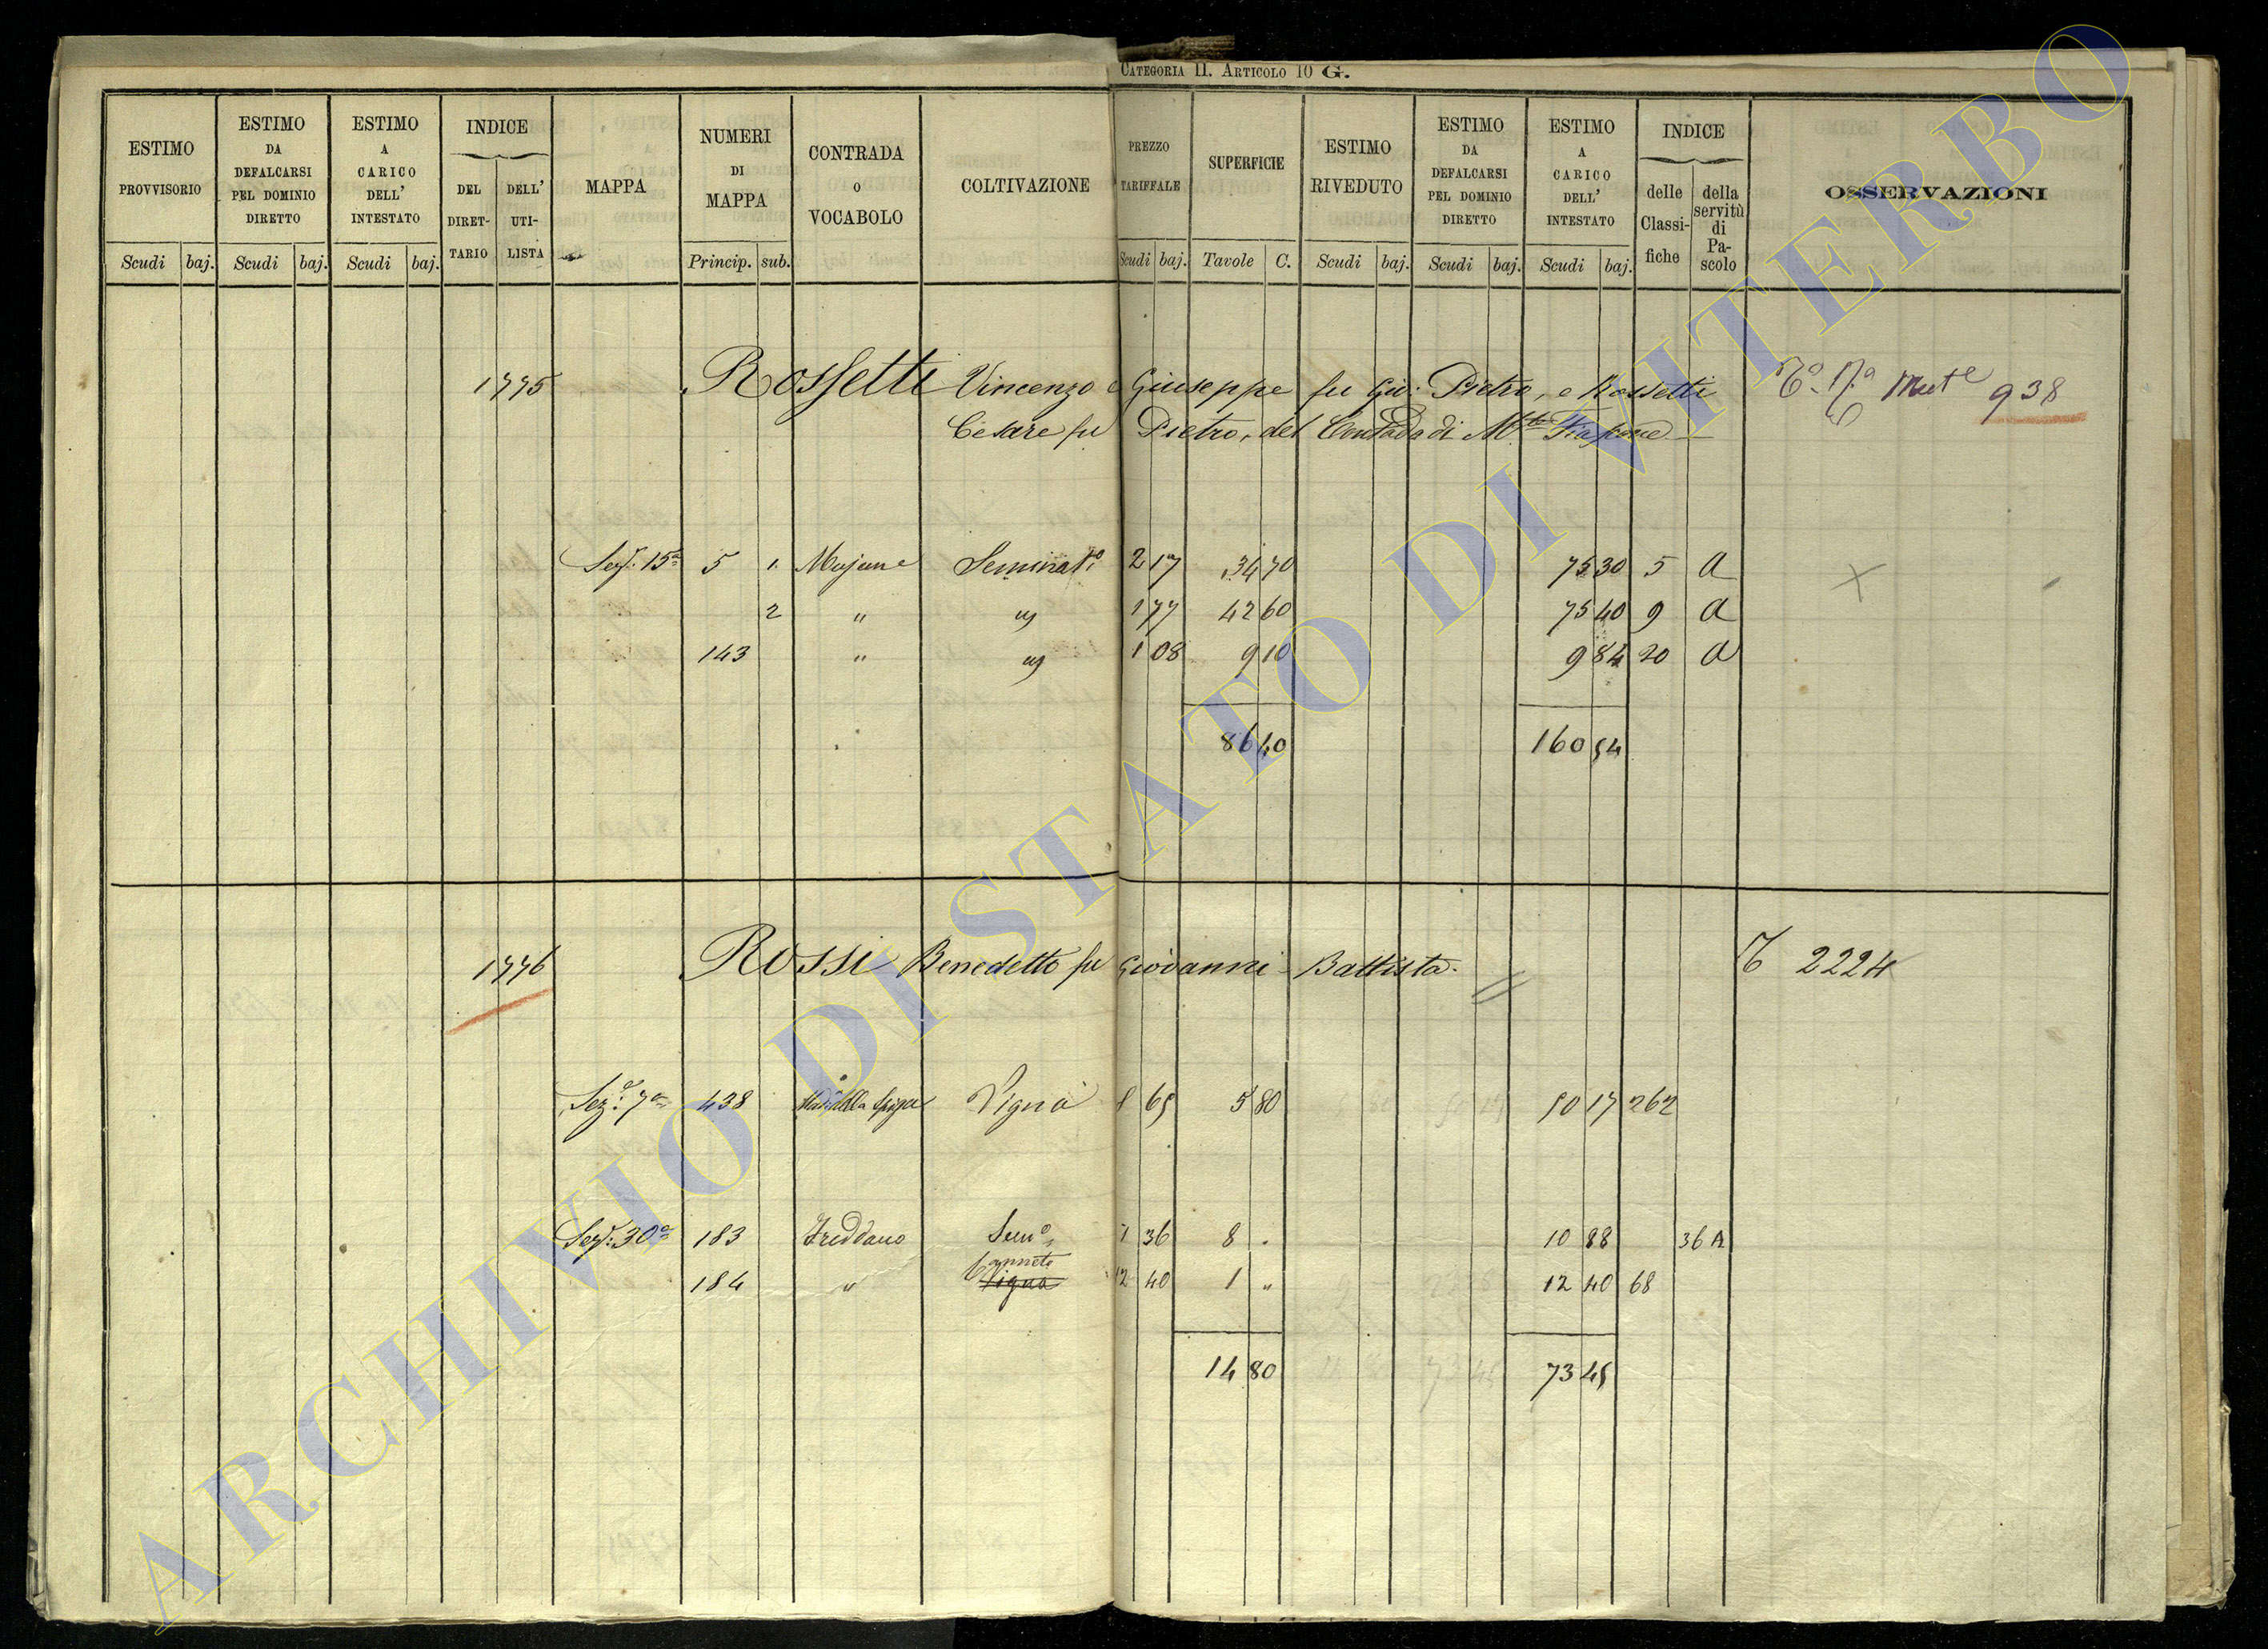 CATEGORIA II. ARTICOLO 10 G.
ESTIMO PROVVISORIO Scudi baj.
ESTIMO DA DEFALCARSI PEL DOMINIO DIRETTO Scudi baj.
ESTIMO A CARICO DELL' INTESTATO Scudi baj.
INDICE
DEL DIRET-TARIO
DELL' UTI-LISTA
MAPPA
NUMERI DI MAPPA Princip. sub.
CONTRADA O VOCABOLO
COLTIVAZIONE
PREZZO TARIFFALE Scudi baj.
SUPERFICIE Tavole C.
ESTIMO RIVEDUTO Scudi baj.
ESTIMO DA DEFALCARSI PEL DOMINIO DIRETTO Scudi baj.
ESTIMO A CARICO DELL' INTESTATO Scudi baj.
INDICE
delle Classi-fiche
della servitù di Pa-scolo
OSSERVAZIONI
1775 Rossetti Vincenzo e Giuseppe fu Gio: Pietro, e Rossetti 938
Cesare fu Pietro, del Contado di M.te Fiascone
Sez. 15a 5 1. Mojane Seminat.o 2 17 34 70 75 30 5 A
2 " " 1 77 42 60 75 40 9 A
143 " " 1 08 9 10 9 84 20 A
86 40 160 54
1776 Rossi Benedetto fu Giovanni Battista. 2224
Sez. 7a 438 della Spiga Vigna 8 65 5 80 50 17 262
Sez. 30a 183 Freddano Sem.o 1 36 8 . 10 88 36 A
Canneto
184 " Vigna 12 40 1 " 12 40 68
14 80 73 45
ARCHIVIO DI STATO DI VITERBO